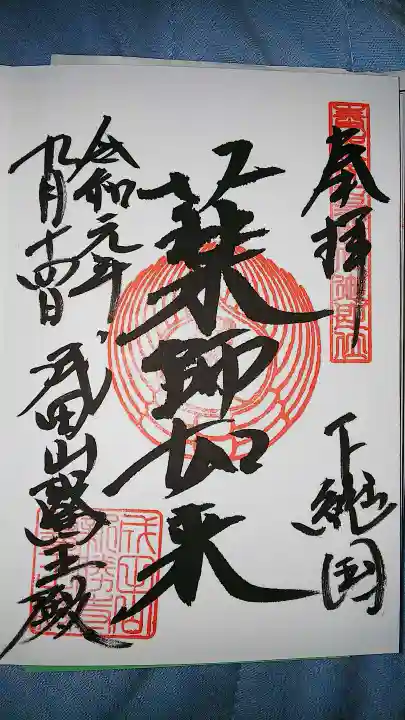 奉拝
下総国
薬師如来
令和元年
九月十四日
成田山醫王殿
成田山
新勝寺